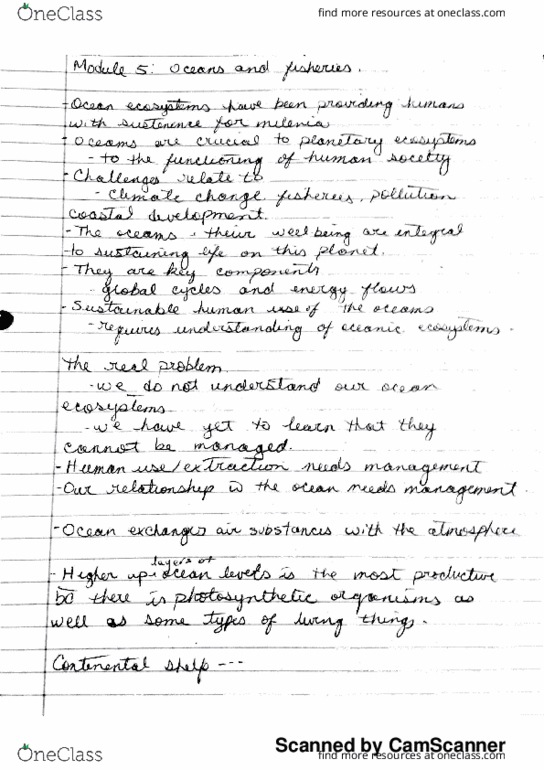 OneClass
find more resources at oneclass.com
Module 5: Oceans and fisheries.
- Ocean ecosystems have been providing humans
with sustenence for milenia
- Oceans are crucial to planetary ecosystems
- to the functioning of human society
- Challenges relate to
- climate change, fisheries, pollution
coastal development.
- The oceans + their well being are integral
to sustaining life on this planet.
- They are key components
- global cycles and energy flows
- Sustainable human use of the oceans
- requires understanding of oceanic ecosystems.
The real problem
- we do not understand our ocean
ecosystems
- we have yet to learn that they
cannot be managed.
- Human use/extraction needs management
- Our relationship w the ocean needs management.
- Ocean exchanges air substances with the atmosphere
layers of
- Higher up ocean levels is the most productive
bc there is photosynthetic organisms as
well as some types of living things.
Continental shelf ---
OneClass
Scanned by CamScanner
find more resources at oneclass.com